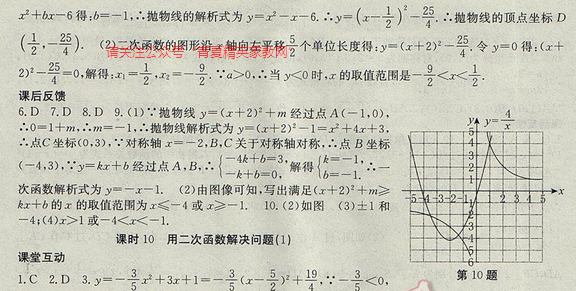 x²+bx-6得:b=-1,∴抛物线的解析式为y=x²-x-6.∴y=(x-1/2)²-25/4.∴抛物线的顶点坐标D
(1/2,-25/4). (2)二次函数的图形沿 轴向左平移5/2个单位长度得:y=(x+2)²-25/4.令y=0得:(x+
2)²-25/4=0,解得:x₁=1/2,x₂=-9/2.∵a>0,∴当y<0时,x的取值范围是-9/2<x<1/2.
请关注公众号
青夏精英家教网
课后反馈
6.D 7.D 8.D 9.(1)∵抛物线y=(x+2)²+m经过点A(-1,0),
∴0=1+m,∴m=-1,∴抛物线解析式为y=(x+2)²-1=x²+4x+3,
∴点C坐标(0,3),∵对称轴x=-2,B,C关于对称轴对称,∴点B坐标
(-4,3),∵y=kx+b经过点A,B,∴{-4k+b=3, -k+b=0, 解得{k=-1, b=-1. ∴一
次函数解析式为y=-x-1. (2)由图像可知,写出满足(x+2)²+m≥
kx+b的x的取值范围为x≤-4或x≥-1. 10.(2)如图 (3)±1和
-4;(4)x>1或-4<x<-1.
y
y=4/x
x
第10题
课时10 用二次函数解决问题(1)
课堂互动
1.C 2.D 3.y=-3/5x²+3x+1=-3/5(x-5/2)²+19/4,∵-3/5<0,